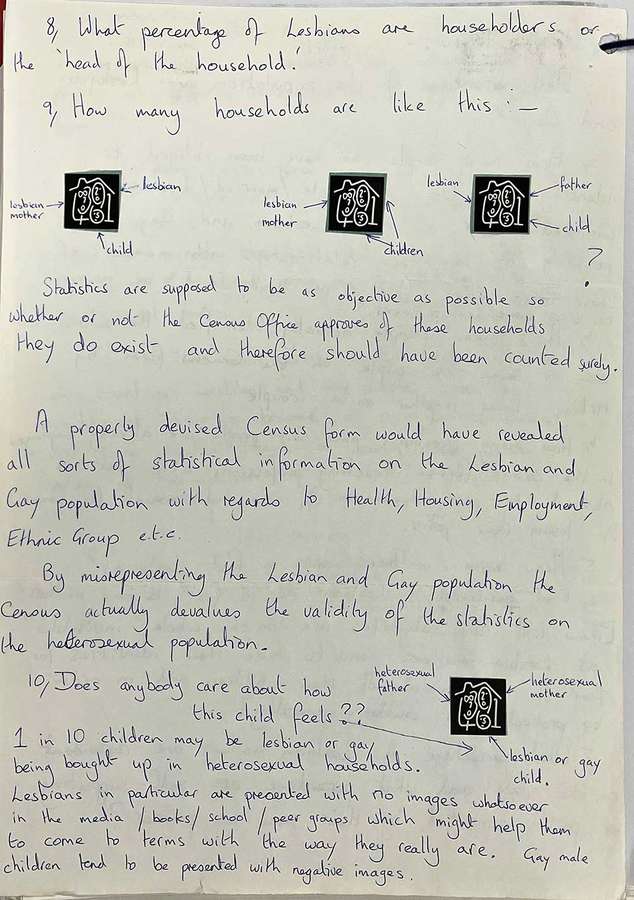 8, What percentage of Lesbians are householders or
the 'head of the household.'
9, How many households are like this :-
lesbian mother
lesbian
child
lesbian mother
children
lesbian
father
child
?
Statistics are supposed to be as objective as possible so
whether or not the Census Office approves of these households
they do exist and therefore should have been counted surely.
A properly devised Census form would have revealed
all sorts of statistical information on the Lesbian and
Gay population with regards to Health, Housing, Employment,
Ethnic Group e.t.c.
By misrepresenting the Lesbian and Gay population the
Census actually devalues the validity of the statistics on
the heterosexual population.
10, Does anybody care about how
this child feels??
heterosexual
father
heterosexual
mother
lesbian or gay
child.
1 in 10 children may be lesbian or gay
being bought up in heterosexual households.
Lesbians in particular are presented with no images whatsoever
in the media / books / school / peer groups which might help them
to come to terms with the way they really are. Gay male
children tend to be presented with negative images.